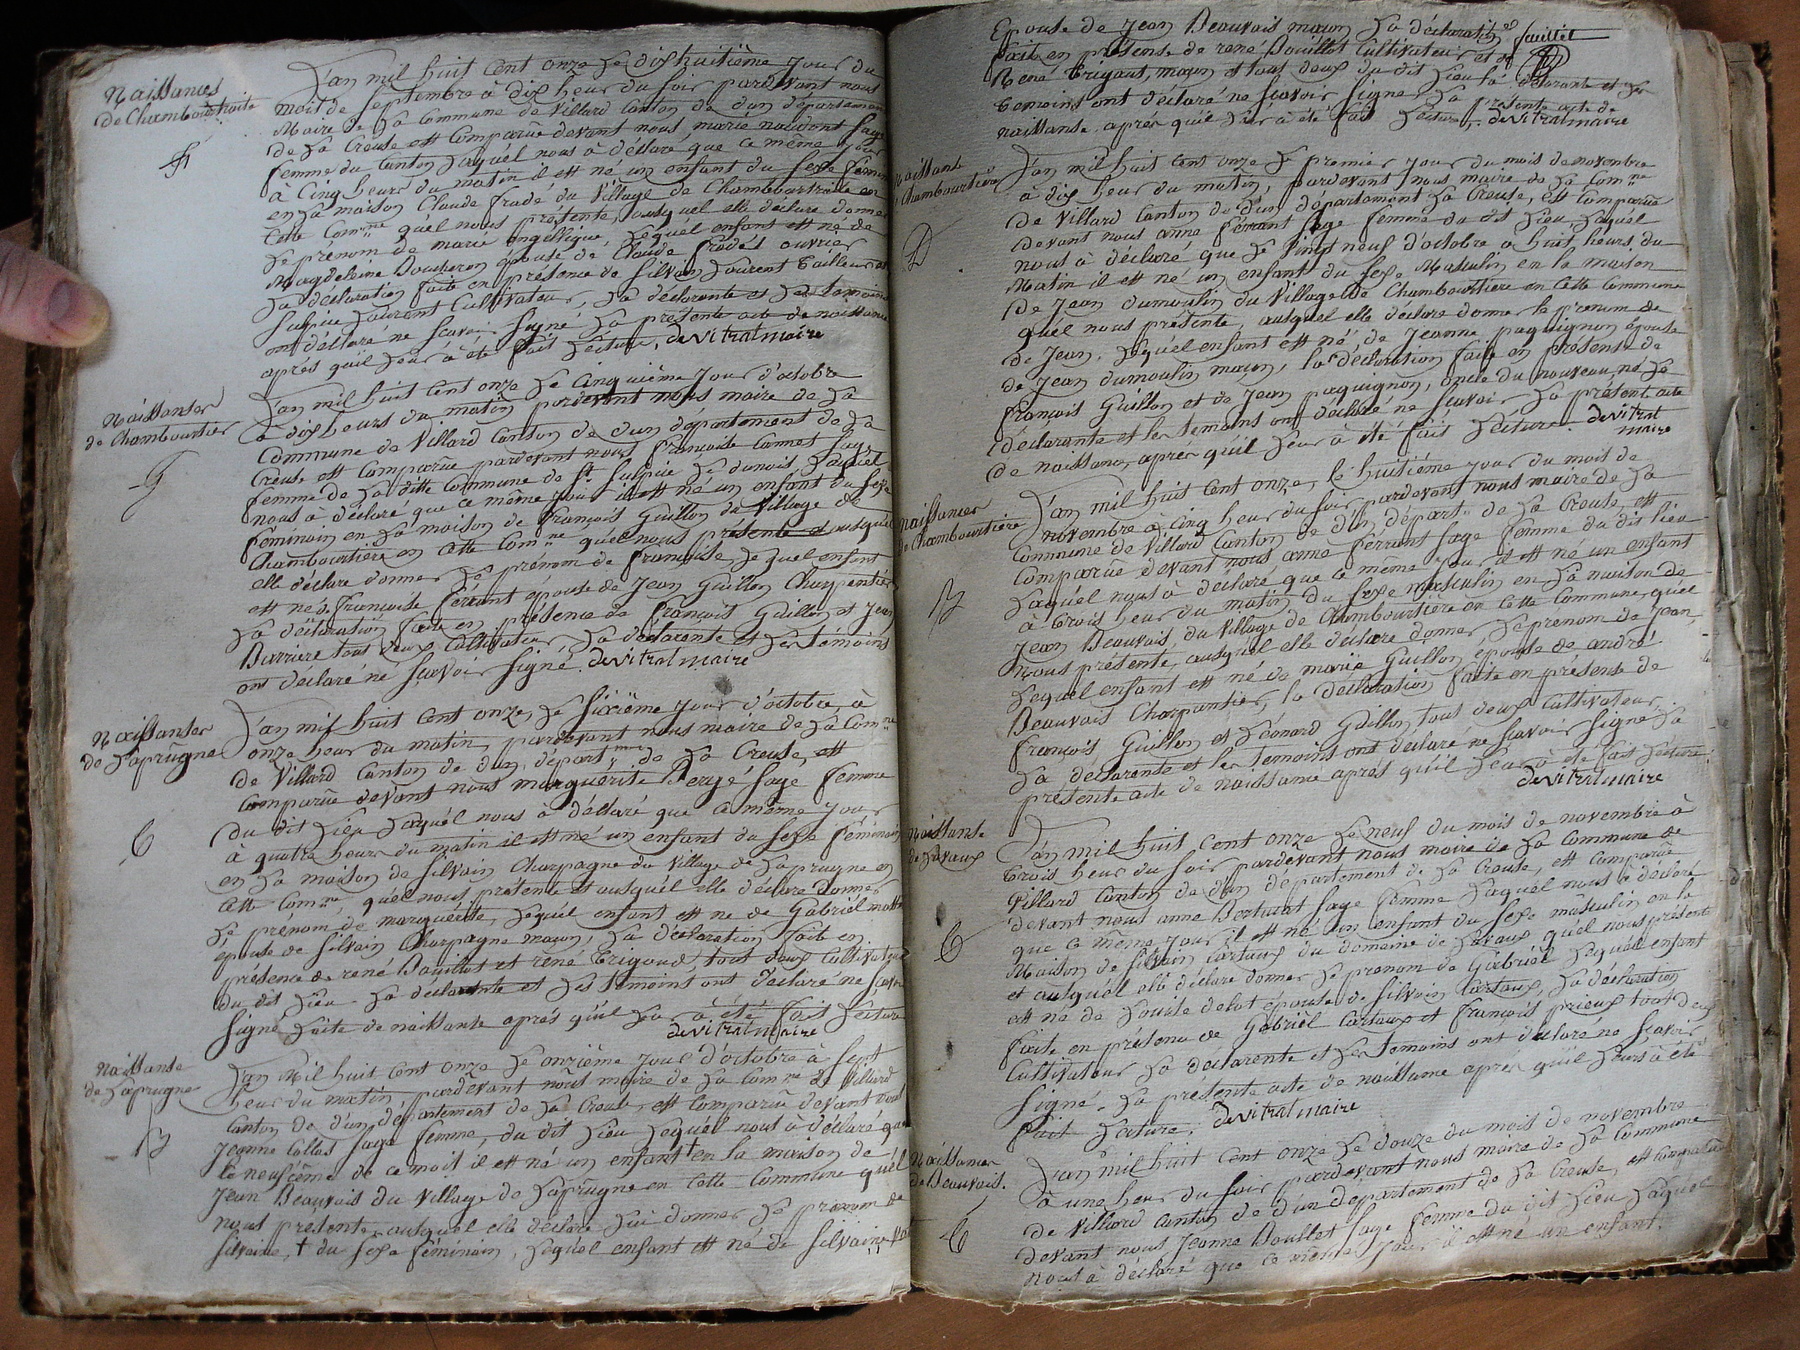 Naissances
de Chambourtraite
L'an mil huit cent onze Le dixhuitième jour du
mois de septembre à dix heur du soir pardevant nous
Maire de La Commune de Villard Canton de dun département
de La Creuse est Comparüe devant nous marie naudont sage
femme du Canton Laquél nous à déclare que ce même jour
à Cinq heurs du matin il est né un enfant du sexe féminin
en La maison Claude fradé du Village de Chambourtraite en
Cette Comne quél nous présente ausquel elle déclare donner
Le prénom de marie angéllique, Lequel enfant est né de
Magdeleine Boucheron épouse de Claude fradet ouvrier
La déclaration faite en présence de Silvain Laurent tailleur et
Sulpice Laurent Cultivateur, La déclarante et Les temoins
ont déclaré ne sçavoir signé La présente acte de naissance
après qu'il Leur à été fait Lecture. devitrat maire
Naissances
de Chambourtier
L'an mil huit cent onze Le Cinquième jour d'octobre
à dix heurs du matin pardevant nous maire de La
Commune de Villard Canton de dun département de La
Creuse est Comparüe pardevant nous françoise Connet sage
femme de La ditte commune de St Sulpice Le dunois Laquél
nous à déclaré que ce même jour il est né un enfant du sexe
feminin en La maison de françois Guillon du Village de
Chambourtiere en Cette Comne quél nous présente et ausquel
elle déclare donner Le prénom de françoise Le quel enfant
est né de françoise ferrant épouse de Jean Guillon Charpentier
La déclaration faite en présence de françois Guillon et Jean
Barriere tous deux Cultivateur La déclarente et Les témoins
ont déclaré né sçavoir signé. devitrat maire
Naissances
de Laprugne
L'an mil huit Cent onze, Le sixième jour d'octobre, à
onze heur du matin, pardevant nous maire de La Comne
de Villard Canton de dun, départmt de La Creuse, est
Comparüe devant nous marguerite Bergé sage femme
du dit Lieu Laquél nous à déclaré que ce même jour
à quatre heurs du matin il est né un enfant du sexe féminin
en La maison de Silvain Charpagne du Village de Laprugne en
Cette Comne quél nous présente et ausquél elle déclare donner
Le prénom de marguerite, Lequél enfant est né de Gabriel
épouse de Silvain Charpagne maçon, La déclaration faite en
présence de rené Bouillot et rené trigaud, tout deux Cultivateur
du dit Lieu La déclarante et Les témoins ont déclaré ne sçavoir
signé L'acte de naissante après qu'il Leur à été fait Lecture
devitrat maire
Naissanse
de Laprugne
L'an Mil huit Cent onze Le onzième jour d'octobre à sept
heur du matin, pardevant nous maire de La Comne de Villard
Canton de d'un département de La Creuse, est Comparüe devant nous
Jeanne Collas sage femme, du dit Lieu Lequél nous à déclaré que
Le neufième de ce mois il est né un enfant en La maison de
Jean Beauvais du Village de Laprugne en Cette Commune quél
nous présente, ausquel elle déclare Lui donner Le prénom de
Silvaine, † du sexe féminin, Lequél enfant est né de Silvaine
Epouse de Jean Beauvais maçon La déclaration
faite en présense de rené Bouillot Cultivateur, et de
feuillet
René trigaut, maçon et tous deux du dit Lieu La déclarante et Les
témoins ont déclaré ne sçavoir signé La présente acte de
naissanse, après quil Leur à été fait Lecture. devitrat maire
Naissant
Chambourtiere
L'an mil huit Cent onze Le premier jour du mois de novembre
à dix heur du matin, pardevant nous maire de La Comne
de Villard Canton de dun département La Creuse, est Comparüe
devant nous anne ferrant sage femme du dit Lieu Laquel
nous à déclaré que Le Vingt neuf d'octobre a huit heurs du
Matin il est né un enfant du sexe Masculin en la maison
de Jean dumoulin du Village de Chambourtiere en Cette Commune
quél nous présente, ausquel elle déclare donner le prénom de
de Jean, Lequél enfant est né, de Jeanne paquignon épouse
de Jean dumoulin maçon, la déclaration faite en présense de
françois Guillon et de Jean paquignon, oncle du nouveau né La
déclarante et les témoins ont déclaré né sçavoir La présent acte
de naissanse, après qu'il Leur à été fait Lecture. devitrat
maire
naissances
de Chambourtiere
L'an mil huit Cent onze, le huitième jour du mois de
novembre à Cinq heur du soir pardevant nous maire de La
Commune de Villard Canton de d'un départt de La Creuse, est
Comparüe devant nous anne ferrant sage femme du dit lieu
Laquél nous à déclaré que ce même jour il est né un enfant
à trois heur du matin du sexe masculin en La maison de
Jean Beauvais, du Village de Chambourtiere en Cette Commune, quél
Nous présente, ausquel elle déclare donner Le prénom de Jean,
Lequel enfant est né de marie Guillon épouse de andré
Beauvais Charpentier, la déclaration faite en présense de
françois Guillon et Léonard Guillon tous deux Cultivateur,
La déclarante et les témoins ont déclaré né sçavoir signé La
présente acte de naissanse après qu'il Leur à été fait Lecture
devitrat maire
Naissanse
de Lavaux
L'an mil huit Cent onze Le neuf du mois de novembre à
trois heur du soir pardevant nous maire de La Commune de
Villard Canton de d'un département de La Creuse, est Comparüe
devant nous anne Bertucat sage femme Laquél nous à déclaré
que ce même jour il est né un enfant du sexe masculin en la
Maison de Silvain Cartaux du domaine de Lavaux quél nous présente
et ausquél elle déclare donner Le prenom de Gabriél Lequél enfant
est né de Louise delot épouse de Silvain Cartaux, La déclaration
faite en présense de Gabriél Cartaux et françois prieux tout deux
Cultivateur La déclarente et Les temoins ont déclaré né sçavoir
signé, La présente acte de naissanse après quil Leurs à été
fait Lecture. devitrat maire
Naissances
de Beauvais.
L'an mil huit Cent onze Le douze du mois de novembre
à une heur du soir pardevant nous maire de La Commune
de Villard Canton de d'un département de La Creuse, est Comparüe
devant nous Jeanne Boullet sage femme du dit Lieu Laquel
nous à déclaré que ce même jour il est né un enfant.